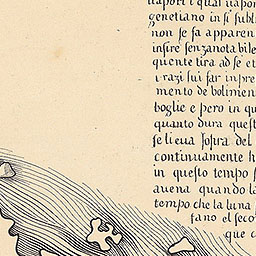 uapori i quai uapor
genetiano in si subl
non se fa apparen
insire senzanotabile
quente tira ad se et
i razi sui far inpre
mento de bolimen
boglie e pero in qu
quanto dura quest
se lieua sopra del
continuamente h
in questo tempo s
auena quando la
tempo che la luna
fano el seco
que c